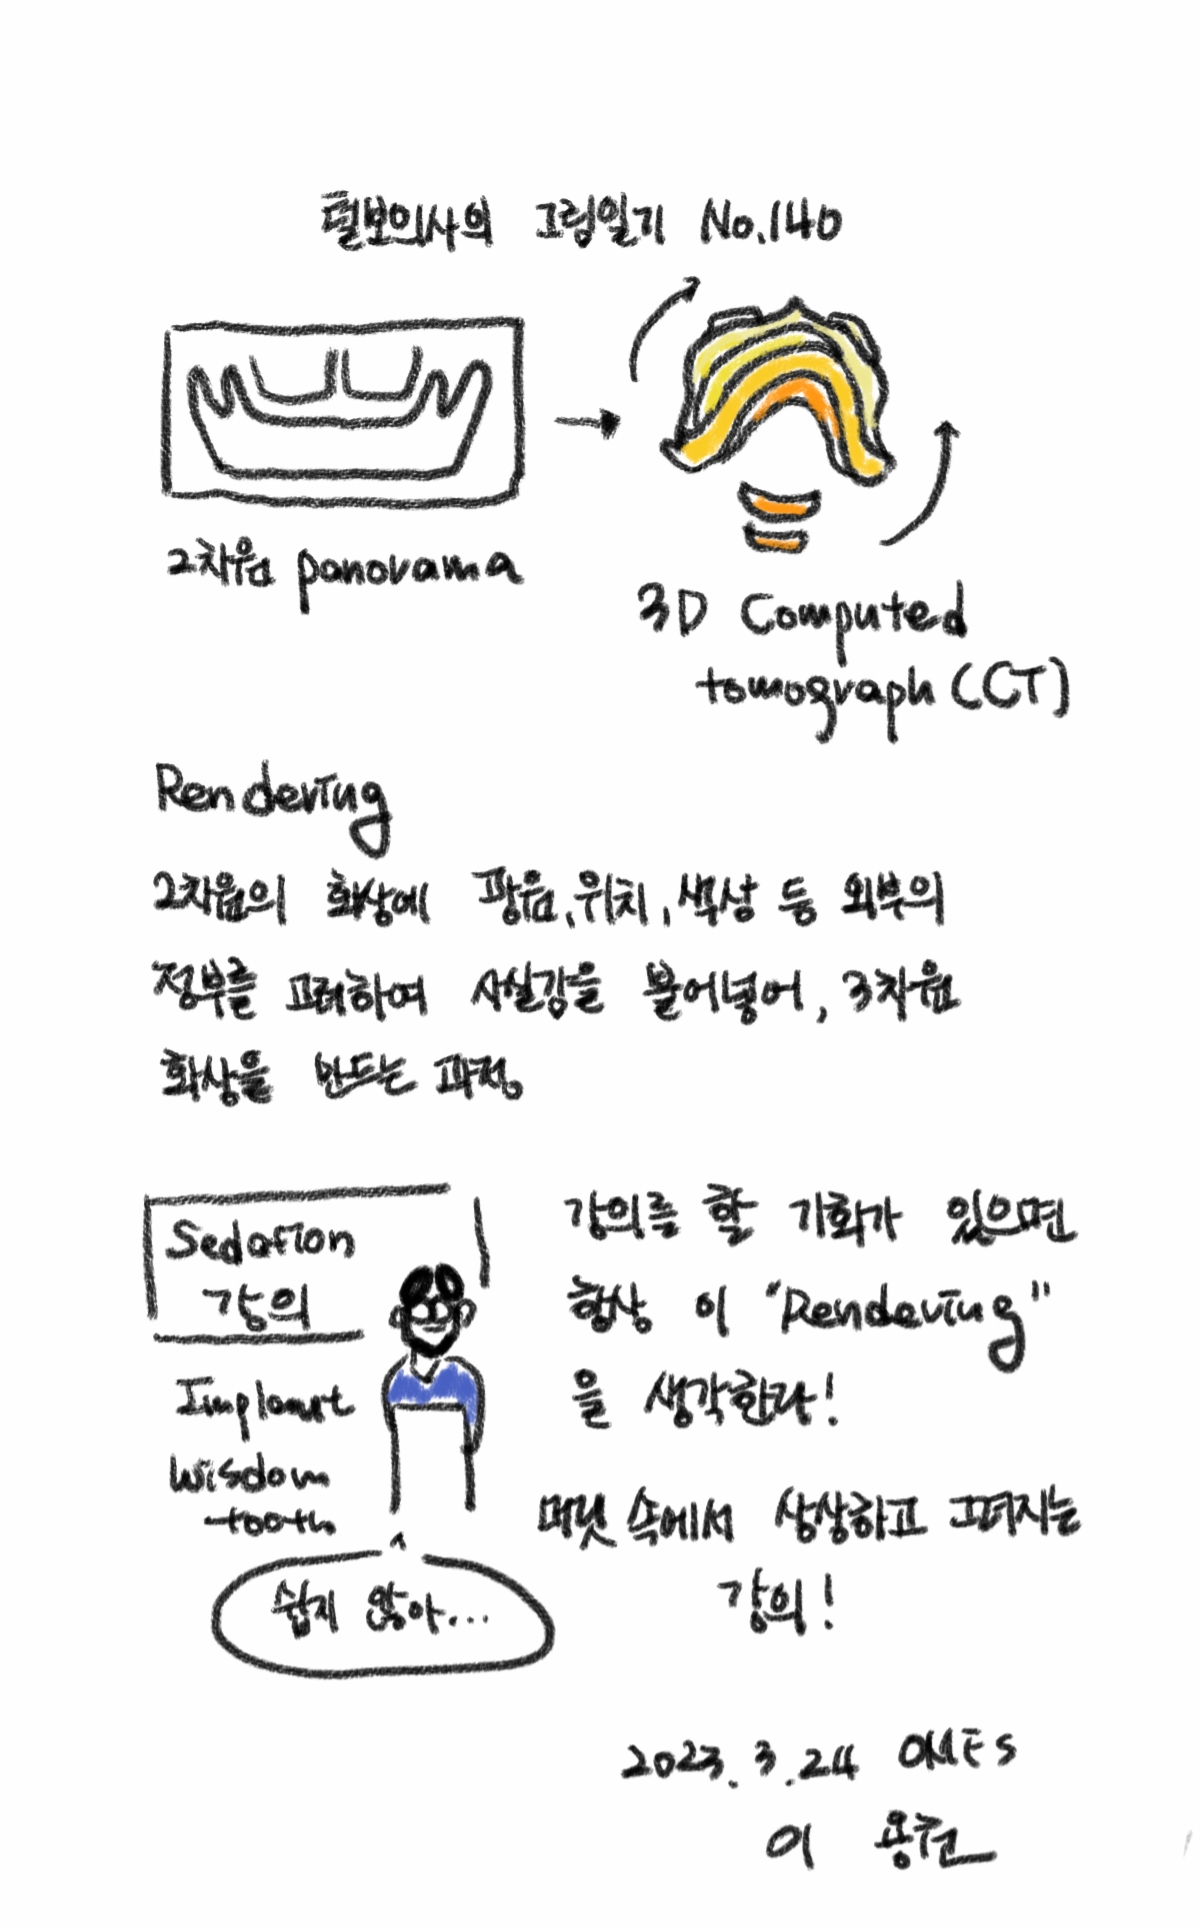 털보의사의 그림일기 No.140
2차원 panorama
3D Computed
tomograph (CT)
Rendering
2차원의 화상에 광원, 위치, 색상 등 외부의
정부를 고려하여 사실감을 불어넣어, 3차원
화상을 만드는 과정
Sedation
강의
Implant
Wisdom
tooth
쉽지 않아...
강의를 할 기회가 있으면
항상 이 "Rendering"
을 생각한다!
머릿 속에서 상상하고 그려지는
강의!
2023.3.24 OMFS
이 용권